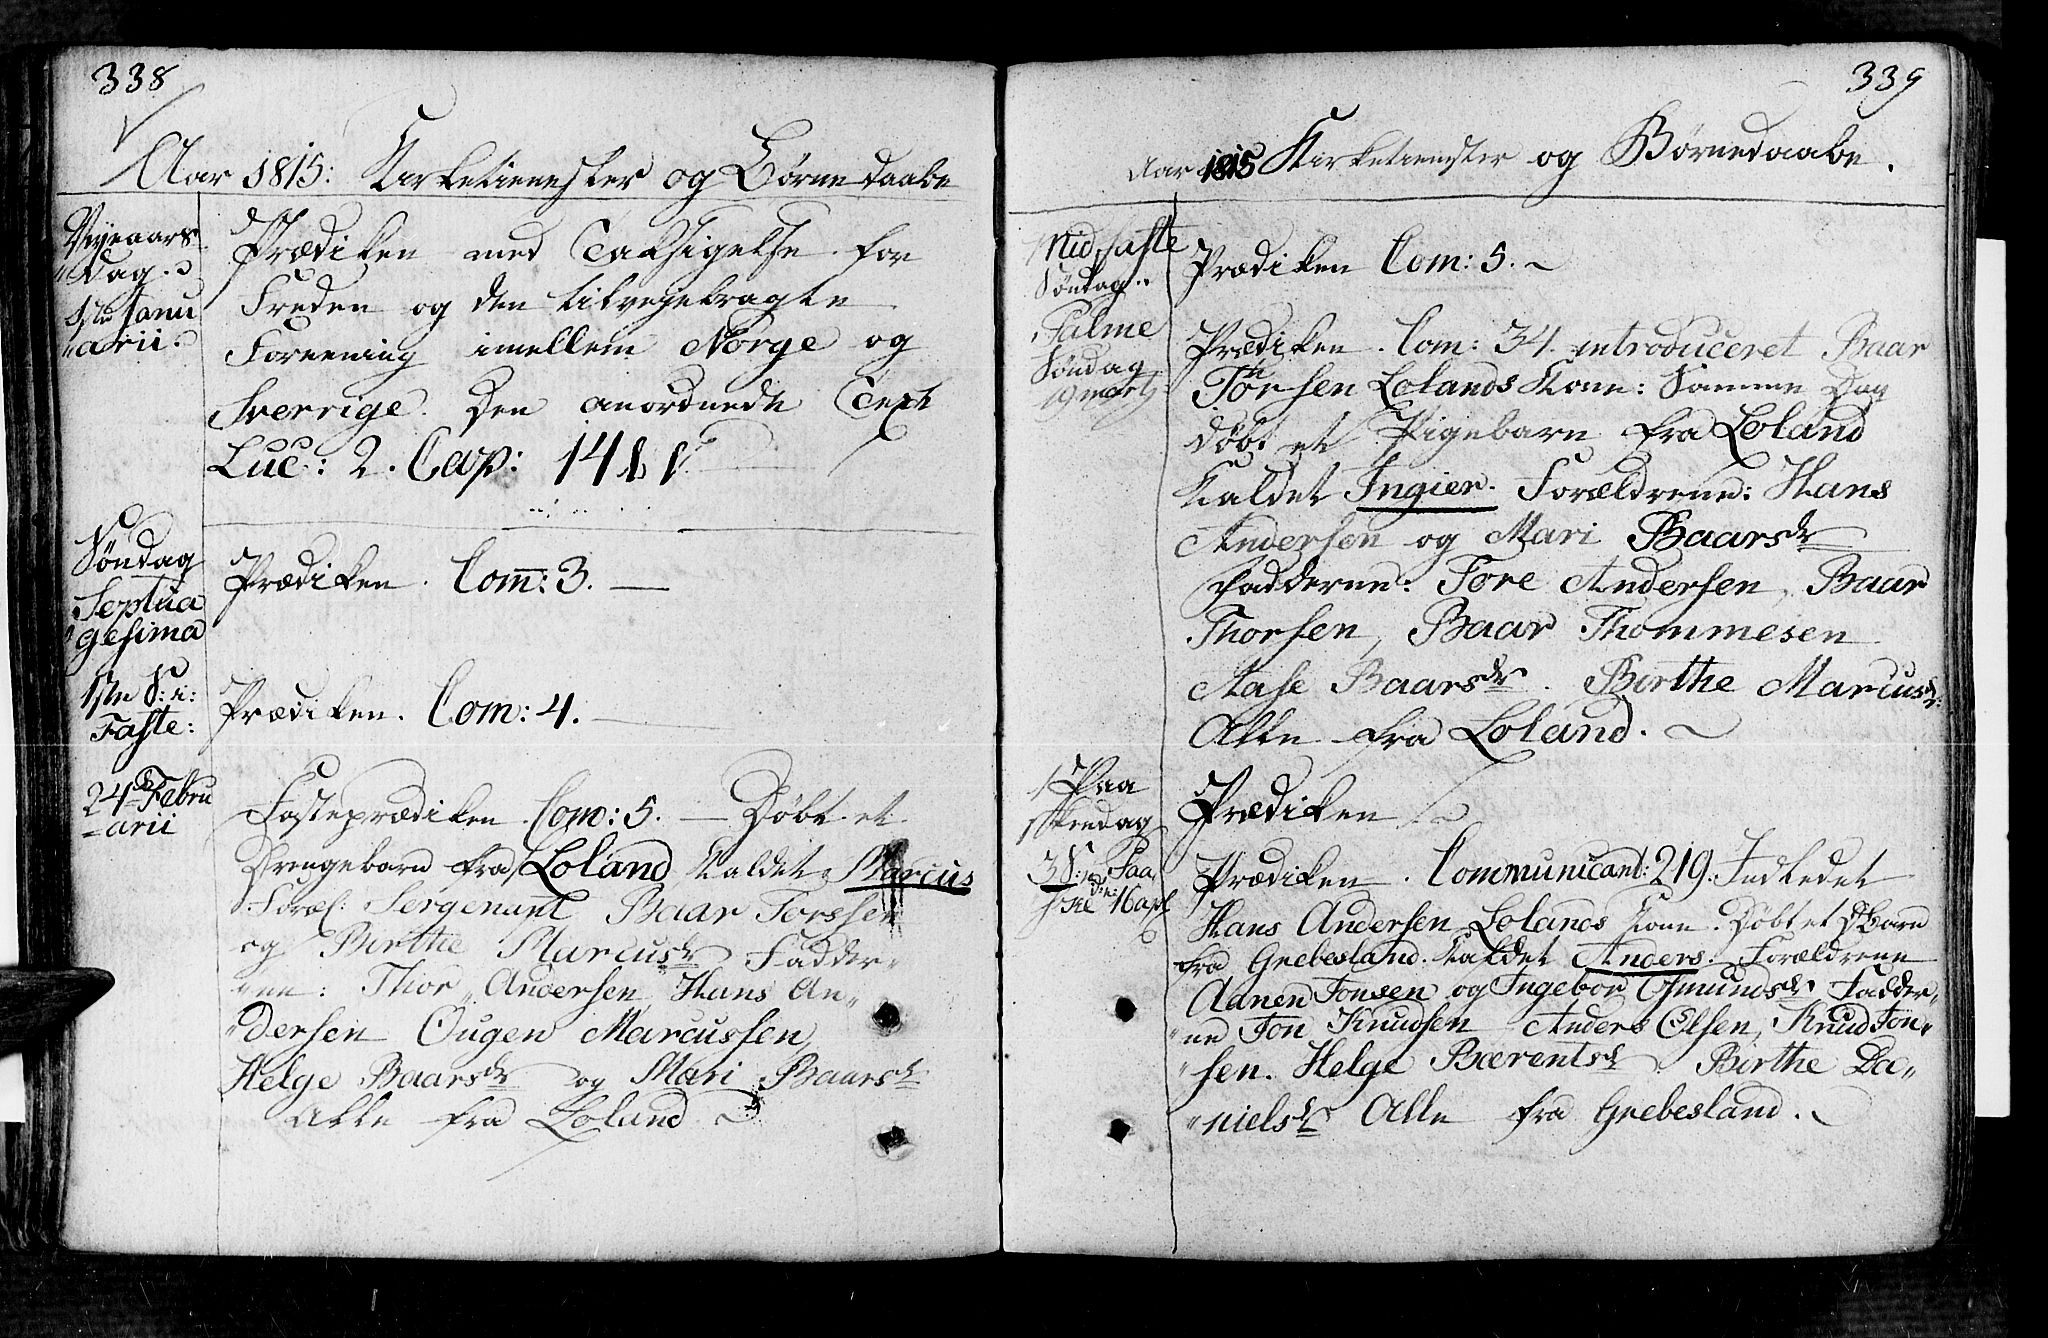 338
Aar 1815: Kirketienester og Børne daabe
Nyeaars
Dag.
1ste Janu
arii.
Prædiken med Taksigelse for
Freden og den tilvejebragte
Foreening imellem Norge og
Sverrige. Den anordnede Text
Luc: 2. Cap: 14 v
Søndag
Septua
gesima
Prædiken. Com: 3. —
1ste S: i:
Faste:
Prædiken. Com: 4. —
24de Febru
-arii
Fasteprædiken. Com: 5. — Døbt et
Drengebarn fra Loland kaldet Marcus
Foræl: Sergenant Baar Torssen
og Birthe Marcusdr Fadder„
„ne: Thor Andersen, Hans An„
„dersen Ougen Marcussen,
Helge Baarsdr og Mari Baarsdr
Alle fra Loland
339
Aar 1815 Kirketienester og Børnedaabe.
Midfaste
Søndag
Prædiken Com: 5. ~
Palme
Søndag
19 marts
Prædiken. Com: 34. introduceret Baar
Torsen Lolands Kone: Samme Dag
døbt et Pigebarn fra Loland
kaldet Ingier. Forældrene: Hans
Andersen og Mari Baarsdr
Fadderne: Tore Andersen, Baar
Thorsen, Baar Thommesen
Aase Baarsdr. Birthe Marcusdr:
Alle fra Loland. ~
1 Paa
skedag
Prædiken. ~
3 S: Paa
ske d: 16 apl
Prædiken. Communicant: 219. Indledet
Hans Andersen Lolands Kone. Døbt et DBarn
fra Grebesland. kaldet Anders. Forældrene
Aanen Jonsen og Ingebor Osmundsdr Fadder„
„ne Jon Knudsen Anders Olsen, Knud Jon„
„sen. Helge Bærentsdr Birthe Da„
„nielsdr Alle fra Grebesland. ~